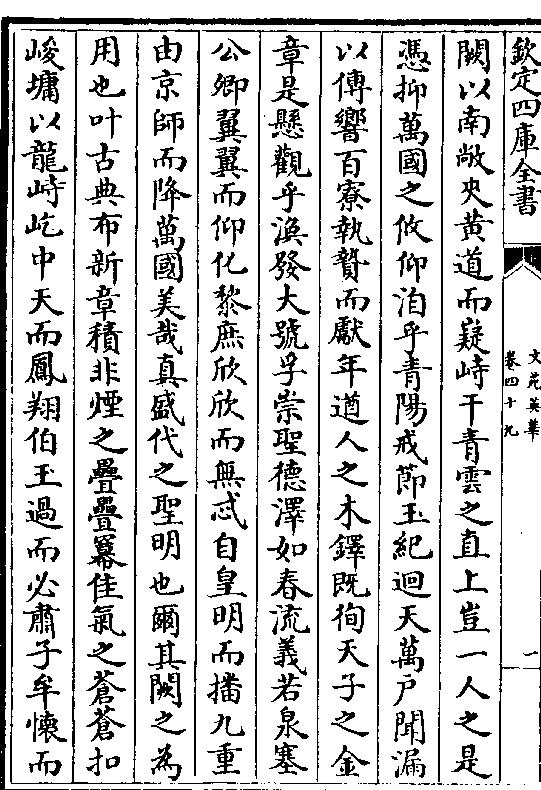 欽定四庫全書
文苑英華
卷四十九
一
闕以南敞夾黃道而嶷峙干青雲之直上豈一人之是
憑抑萬國之攸仰洎乎青陽戒節玉紀迴天萬戶聞漏
以傳響百寮執贄而獻年遒人之木鐸既徇天子之金
章是懸觀乎渙發大號孚崇聖德澤如春流義若泉塞
公卿翼翼而仰化黎庶欣欣而無忒自皇明而播九重
由京師而降萬國美哉真盛代之聖明也爾其闕之為
用也叶古典布新章積非煙之疊疊羃佳氣之蒼蒼扣
峻墉以龍峙屹中天而鳳翔伯玉過而必肅子牟懷而